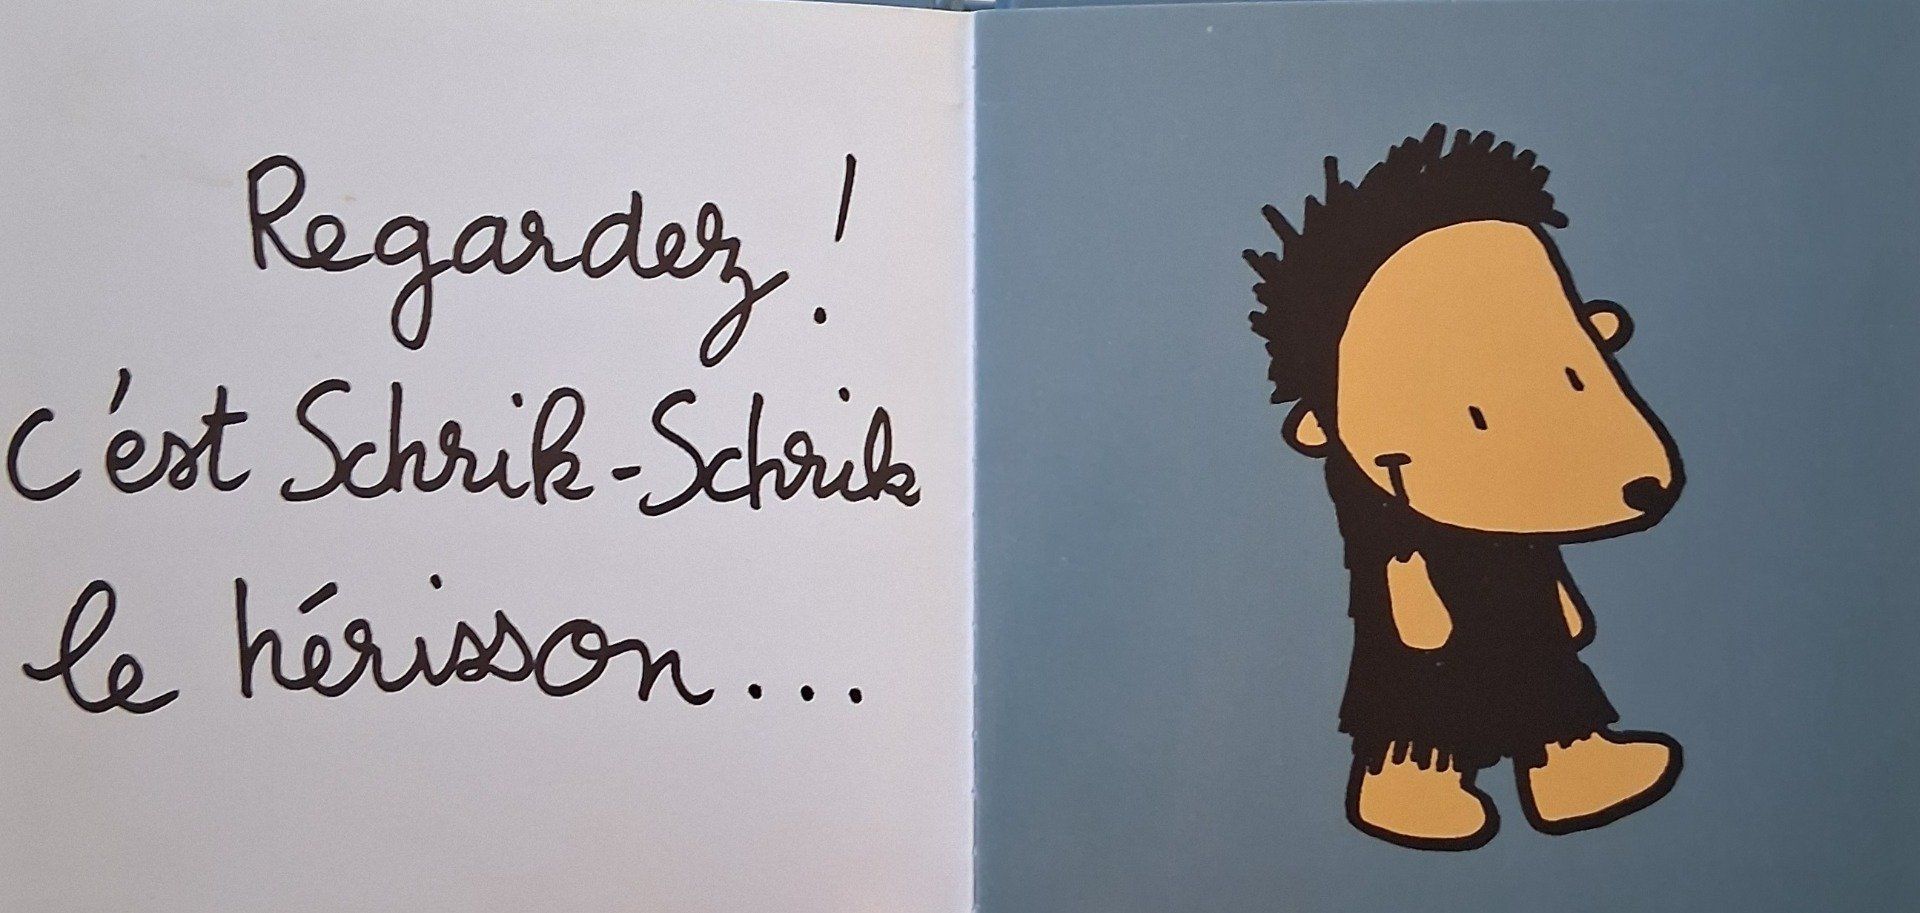 Regardez !
c'est Schrik-Schrik
le hérisson...